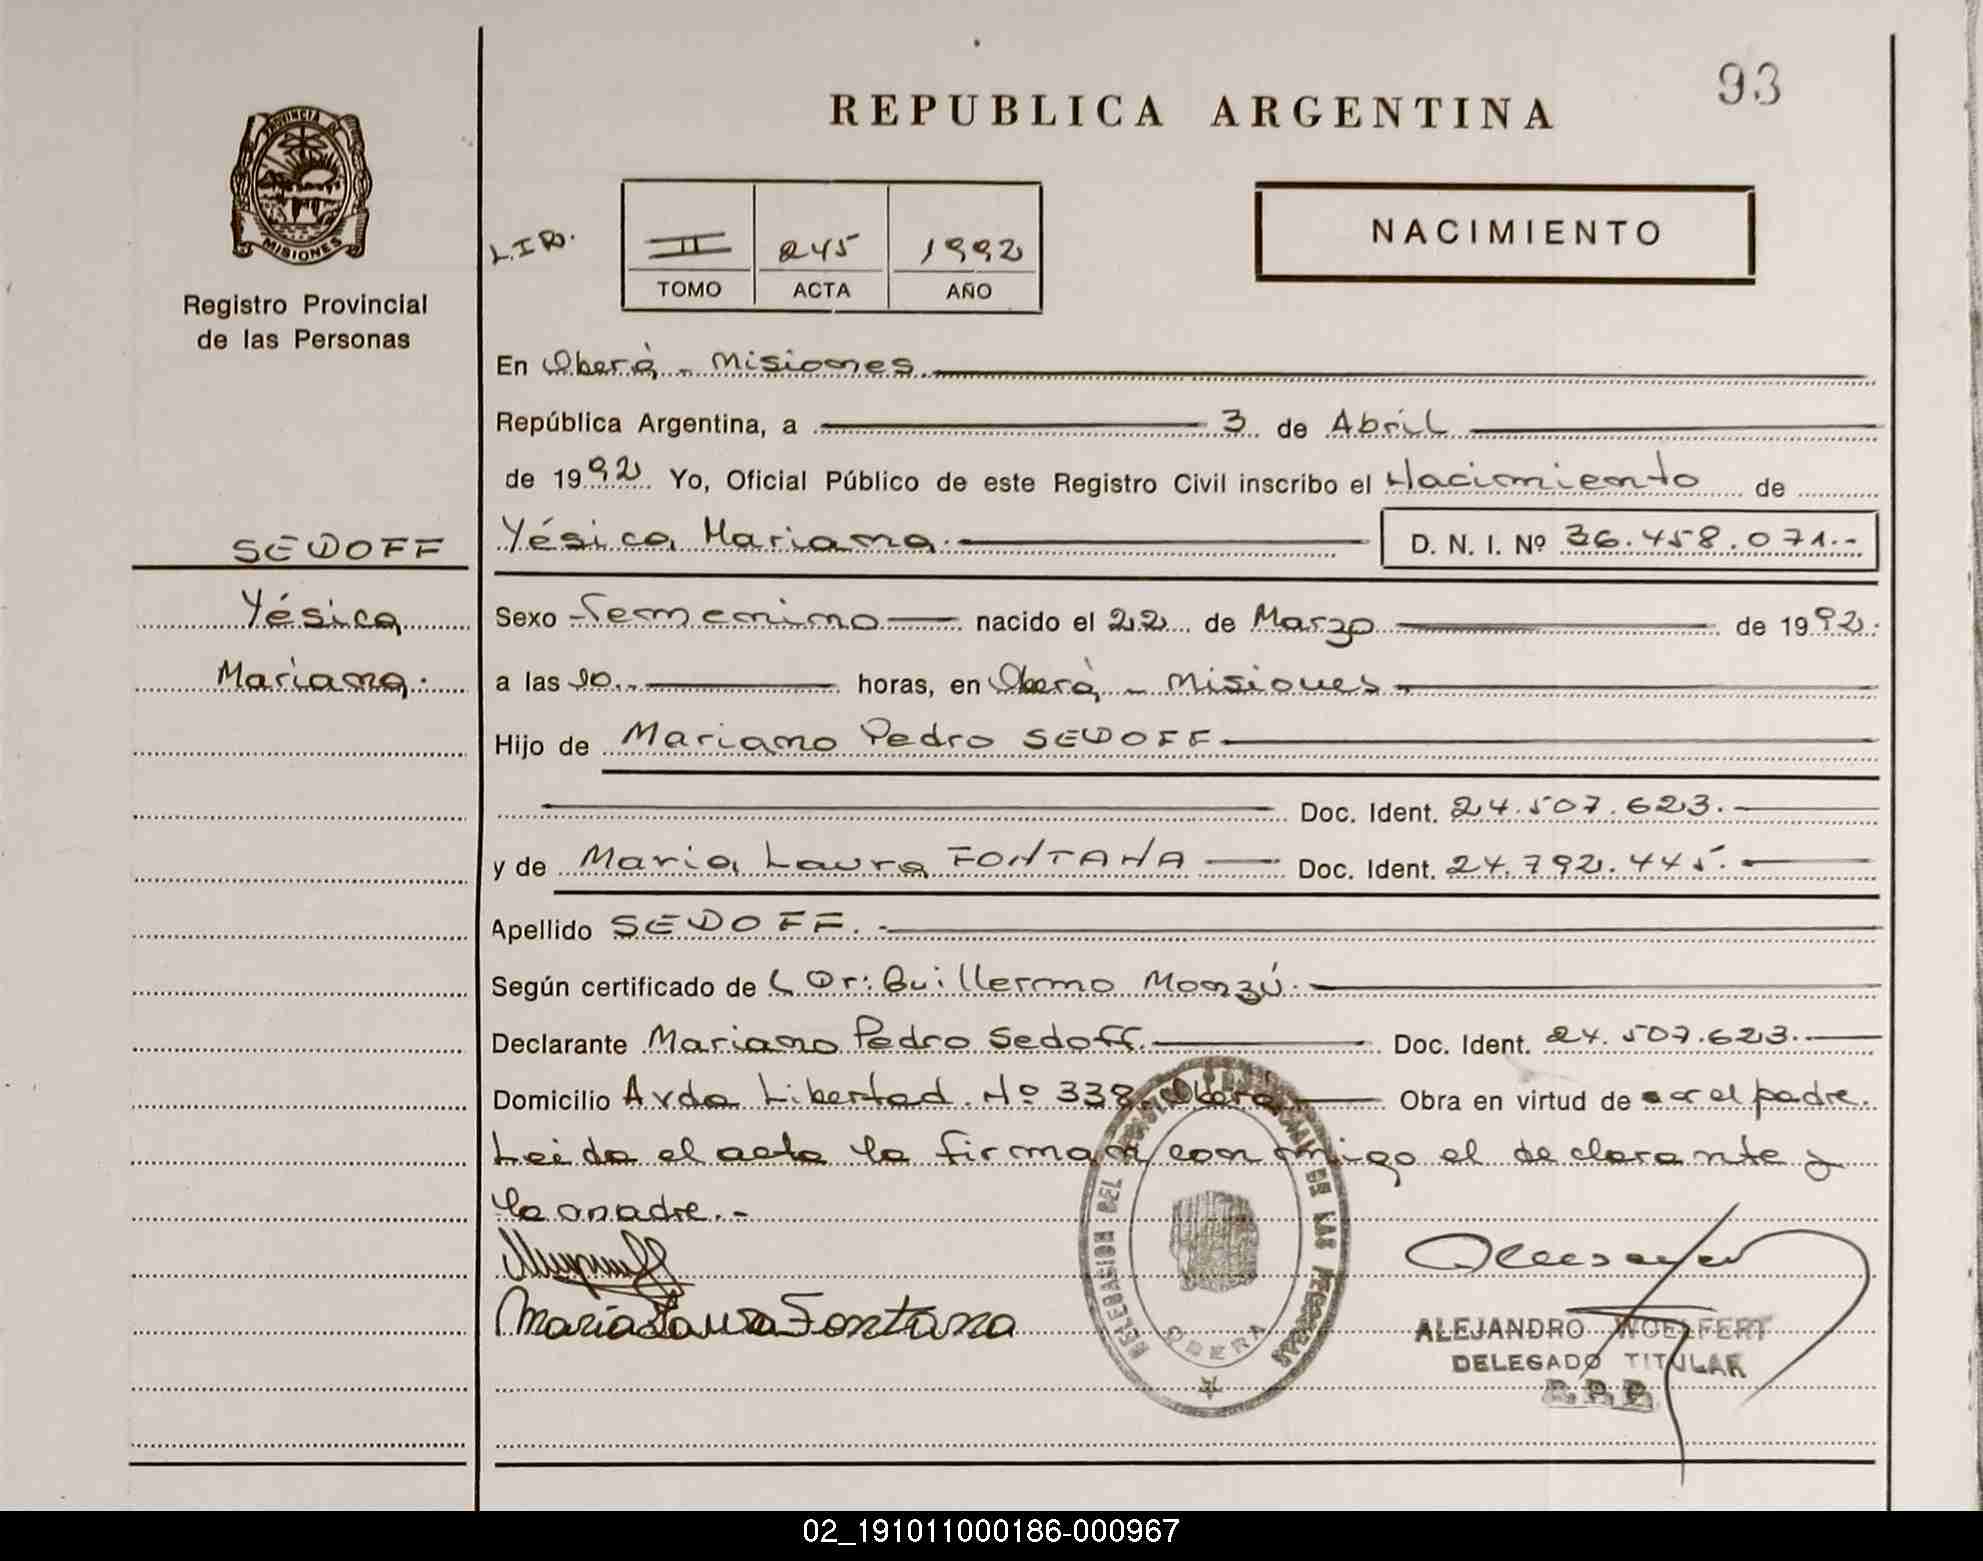 93
REPUBLICA ARGENTINA
PROVINCIA DE
MISIONES
Registro Provincial
de las Personas
LIB.
II 245 1992
TOMO ACTA AÑO
NACIMIENTO
En Oberá - Misiones
República Argentina, a 3 de Abril
de 1992 Yo, Oficial Público de este Registro Civil inscribo el Nacimiento de
SEDOFF
Yésica Mariana. D. N. I. Nº 36.458.071.-
Yésica
Sexo Femenino nacido el 22 de Marzo de 1992.
Mariana.
a las horas, en Oberá - Misiones.
Hijo de Mariano Pedro SEDOFF
Doc. Ident. 24.507.623.
y de Maria Laura FONTANA Doc. Ident. 24.792.445.
Apellido SEDOFF.-
Según certificado de Dr: Guillermo Monzú.
Declarante Mariano Pedro Sedoff. Doc. Ident. 24.507.623.
Domicilio Avda Libertad Nº 338 Oberá Obra en virtud de el padre.
Leida el acta la firman conmigo el declarante y
la madre.-
Maria Laura Fontana
DELEGACION DEL DE LAS PERSONAS
OBERA
ALEJANDRO WOELFERT
DELEGADO TITULAR
R.P.P.
02_191011000186-000967